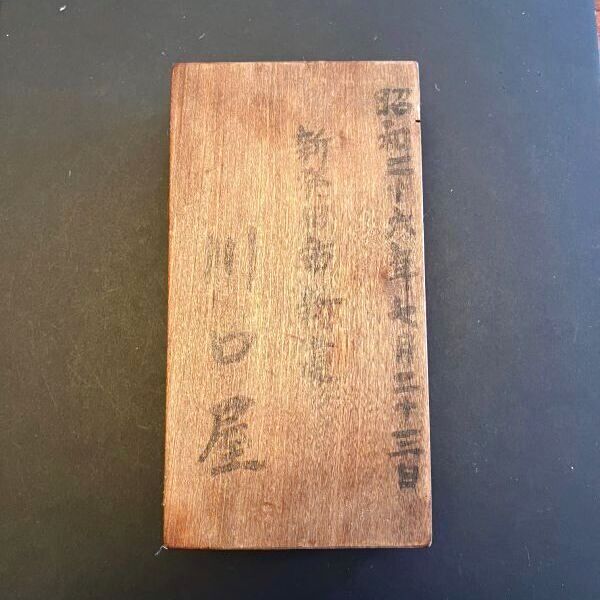 昭和三十六年七月二十三日
新発田市
川口屋